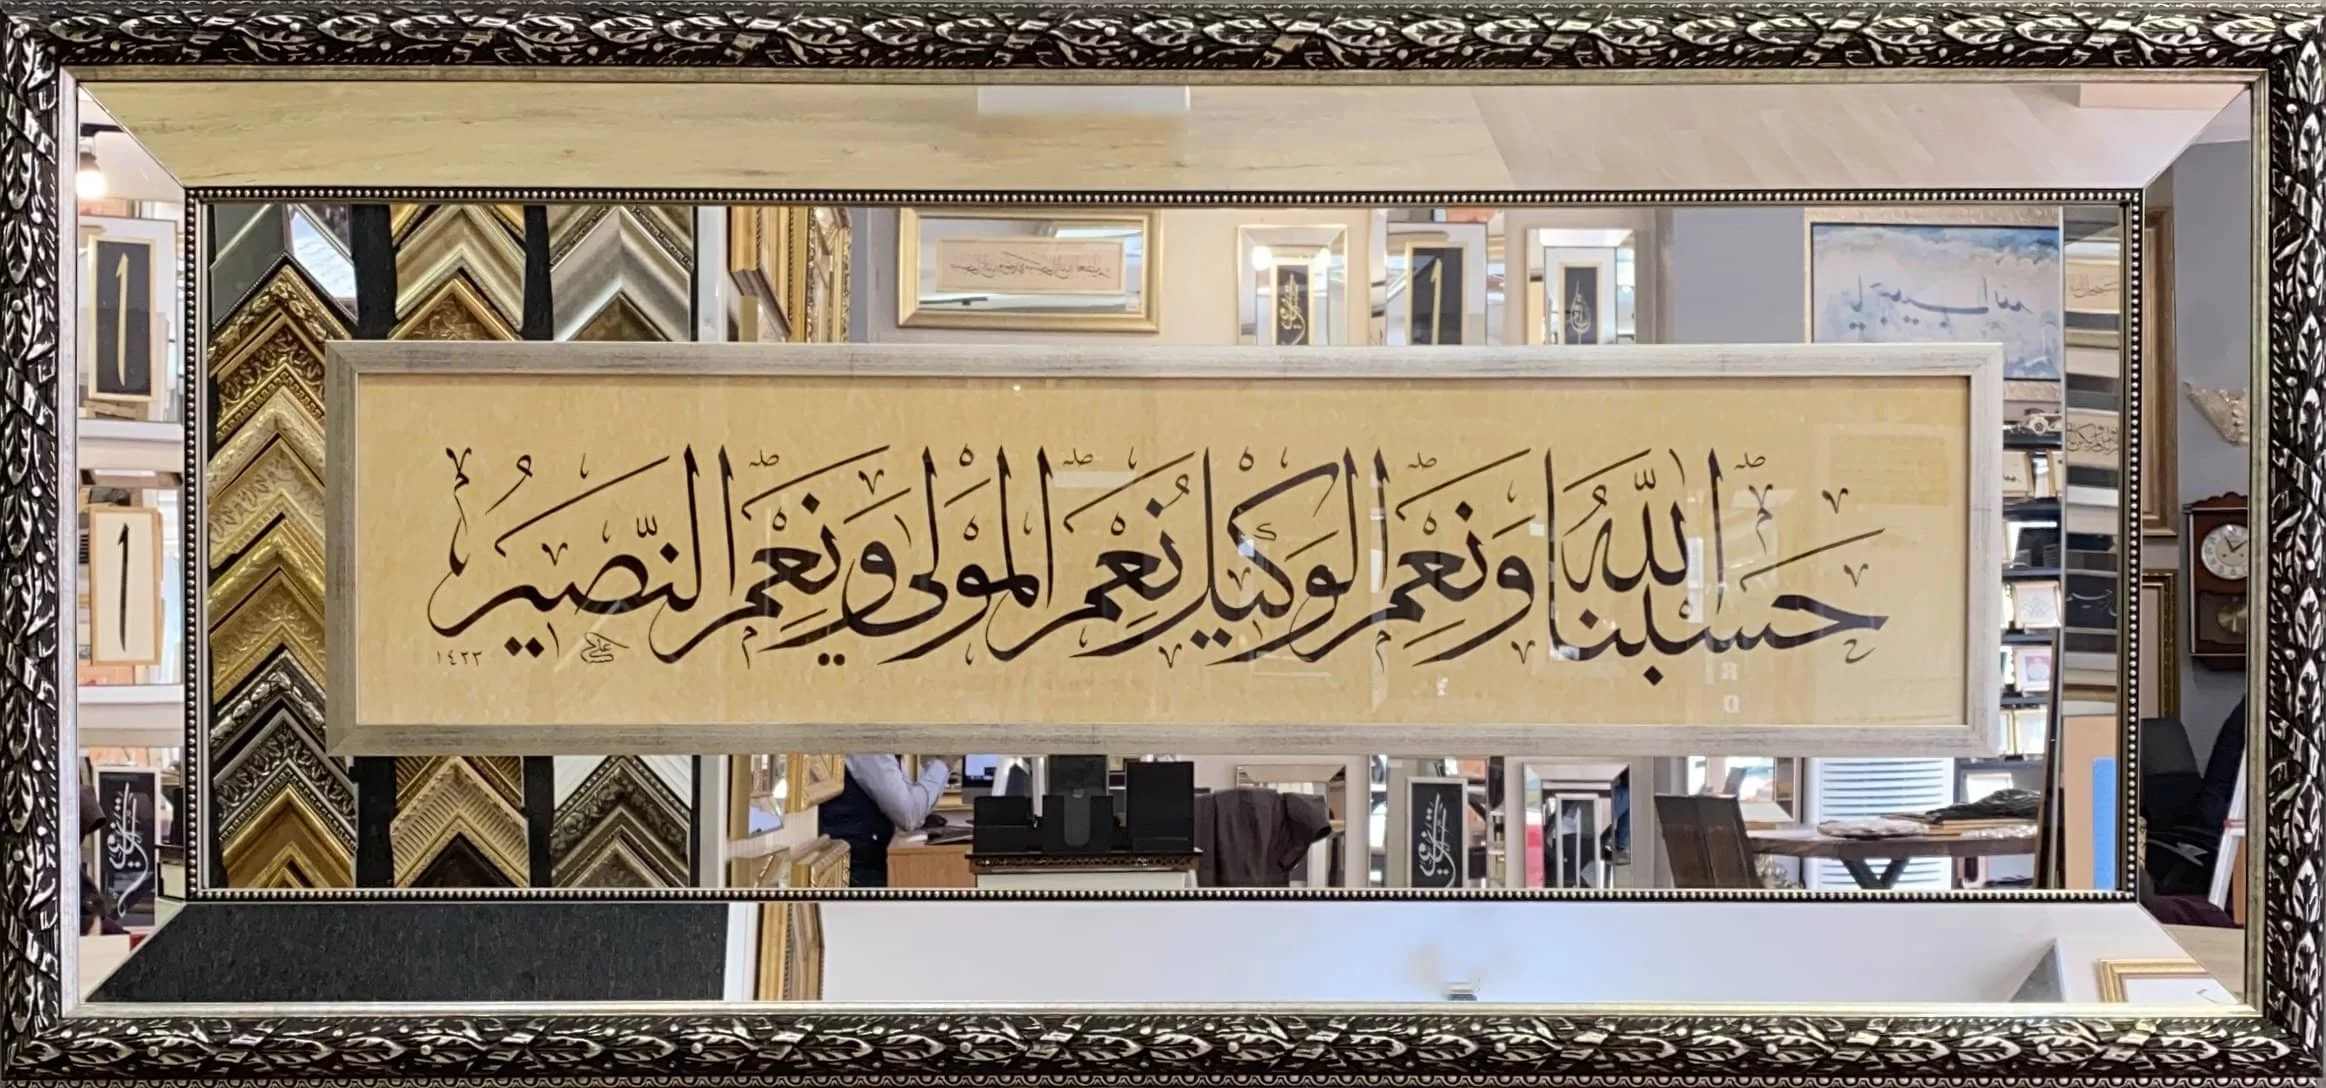 حَسْبُنَا اللّٰهُ وَنِعْمَ الْوَكِيلُ نِعْمَ الْمَوْلٰى وَنِعْمَ النَّصِيرُ
١٤٢٣